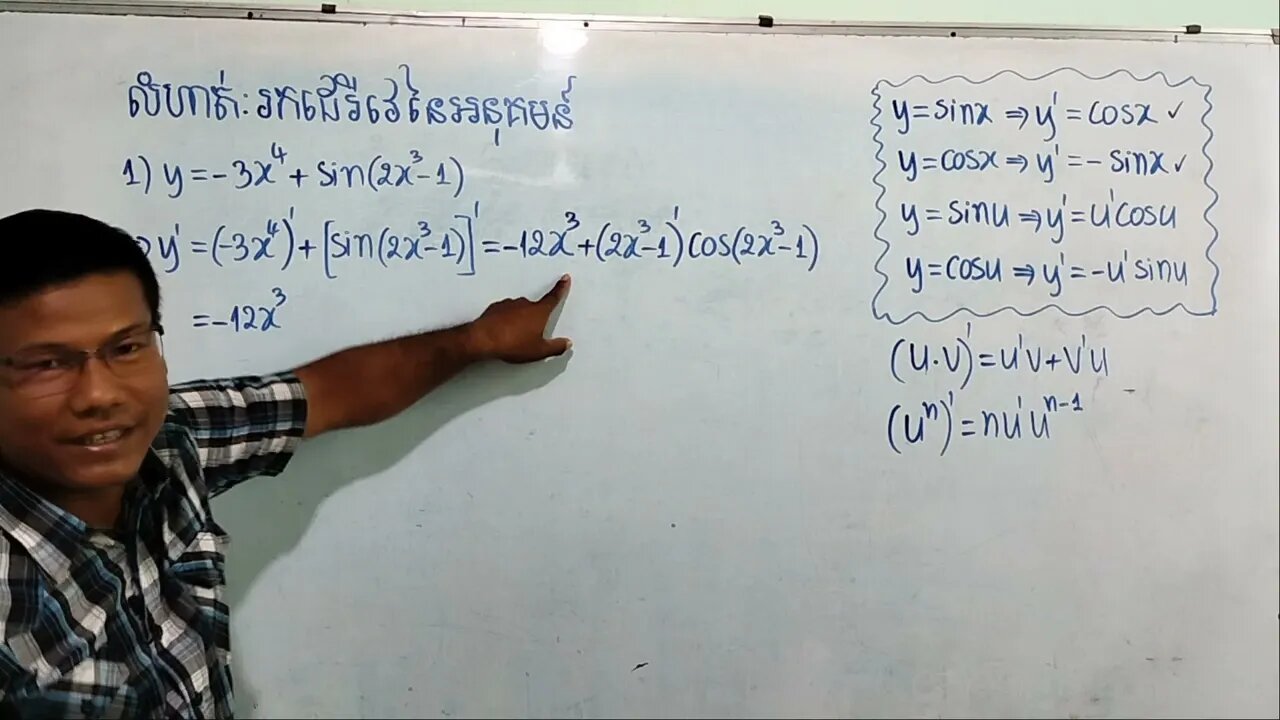 លំហាត់: រកដេរីវេនៃអនុគមន៍
1) y = -3x⁴ + sin(2x³-1)
⇒ y' = (-3x⁴)' + [sin(2x³-1)]' = -12x³ + (2x³-1)' cos(2x³-1)
= -12x³
y = sinx ⇒ y' = cosx ✓
y = cosx ⇒ y' = - sinx ✓
y = sinu ⇒ y' = u'cosu
y = cosu ⇒ y' = -u'sinu
(u·v)' = u'v + v'u
(uⁿ)' = nu'uⁿ⁻¹